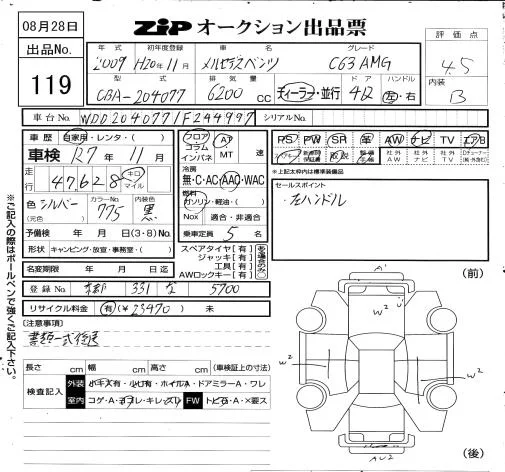 08月28日
出品No.
119
ZIP オークション出品票
評価点
4.5
内装
B
年式 初年度登録 車名 グレード
2009 H20年11月 メルセデスベンツ C63 AMG
型式 排気量 ドア ハンドル
CBA-204077 6200cc ディーラー・並行 4D 左・右
車台No. WDD2040771F244997 シリアルNo.
車歴 自家用・レンタ・( )
車検 R7年 11月
走行 47,628 キロ マイル
色 シルバー (元色) カラーNo. 775 内装色 黒
予備検 年 月 日(3・8)No.
形状 キャンピング・放宣・事務室・( )
名変期限 年 月 日迄
フロア コラム インパネ AT MT 速
冷房 無・C・AC・AAC・WAC
燃料 ガソリン・軽油・( )
Nox 適合・非適合
乗車定員 5名
スペアタイヤ[有]
ジャッキ[有]
工具[有]
AWロックキー[有]
ある場合のみ○
PS PW SR 革 AW ナビ TV エアB
取説 社外AW 社外ナビ 社外TV
※上記太枠内は標準装備品
セールスポイント
左ハンドル
登録No. 京都 331 な 5700
リサイクル料金 有(¥23470) 未
[注意事項]
書類一式後送
長さ cm 幅 cm 高さ cm (車検証上の寸法)
検査記入 外装 小キズ有・小凹有・ホイルA・ドアミラーA・ワレ
室内 コゲ・A・ヨゴレ・キレ・スレ FW トビ石・A・X要ス
※ご記入の際はボールペンで強くご記入下さい。
(前)
A1
W2
U
W2
W2
AU2
(後)